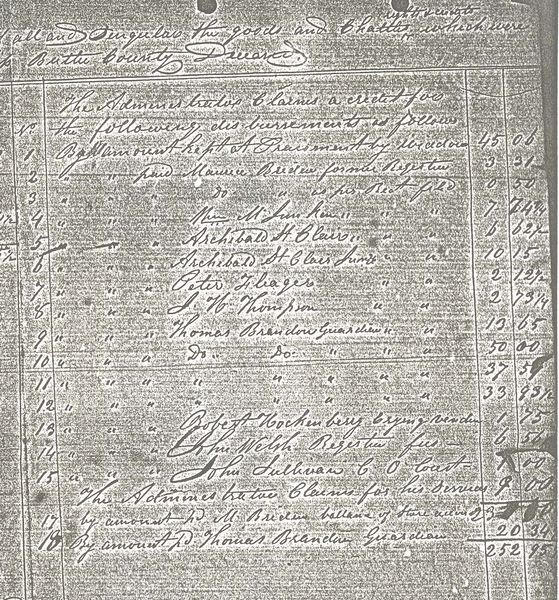 all and Singular the goods and Chattels rights credits which were
Butler County Deceased.
The Administrator Claims a credit for
No the following disbursements as follows
1 By amount kept at Praisment by Widow 45 00
2 " " paid Maurice Bredin former Register 3 31
3 " " " do as per Rect filed 0 50
4 " " " Wm M. " " " 7
5 " " " Archibald St Clair " " " 6 62½
6 " " " Archibald St Clair " " 10 15
7 " " " Peter " " 2 12½
8 " " " J. W. Thompson " " 2 73¼
9 " " " Thomas Brandon Guardian " " 13 65
10 " " " Do " Do " " " 50 00
11 " " " " " " " 37
12 " " " " " " " 33
13 " " " Robert Hockenberry Crying vendue 1 75
14 " " " John Welsh Register fees 6
15 " " " John Sullivan C O Court 00
The Administrator Claims for his services 9 00
17 by amount pd M. Bredin ballance of Store
18 By amount pd Thomas Brandon Guardian 20 34
252 95